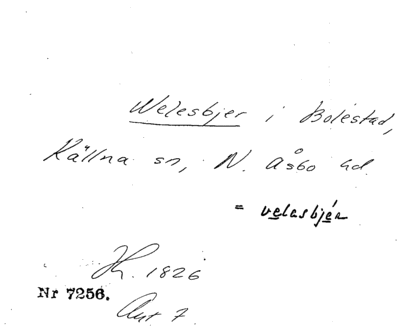 Welesbjer i Bolestad,
Källna sn, N. Åsbo hd.
= velasbjér
Hh. 1826
Nr 7256.
Ant 7